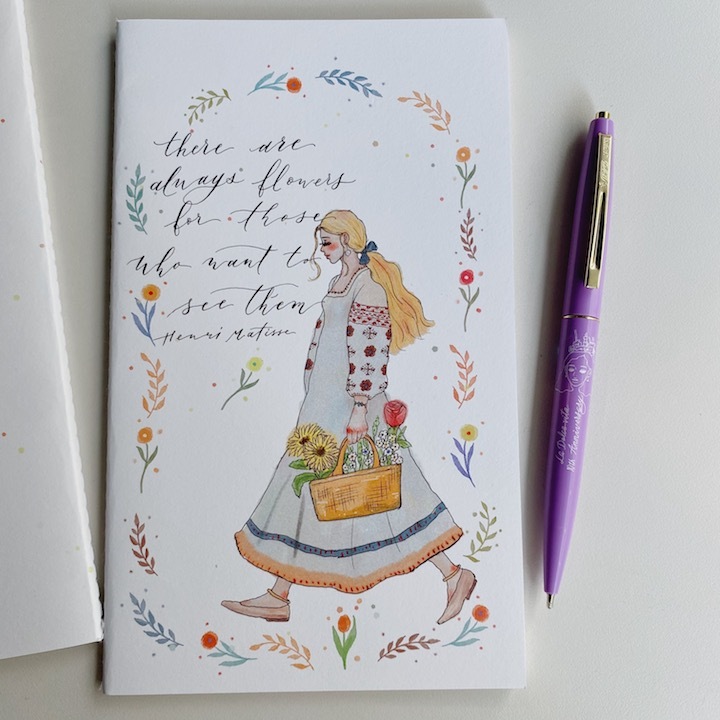 there are
always flowers
for those
who want to
see them
Henri Matisse
La Dolce Vita
8th Anniversary